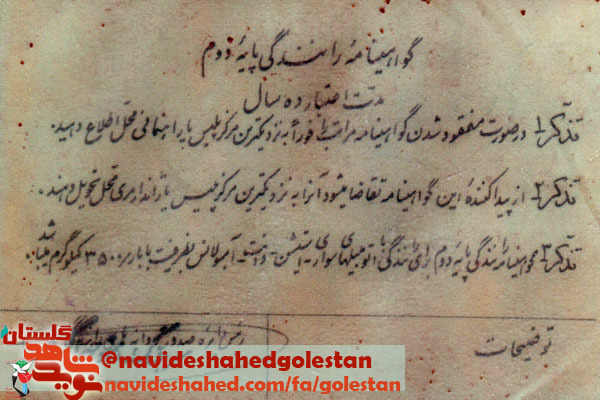 گواهینامهٔ رانندگی پایهٔ دوم
مدت اعتبار ده سال
تذکر۱ درصورت مفقود شدن گواهینامه مراتب را فوراً به نزدیکترین مرکز پلیس یا راهنمائی محل اطلاع دهید.
تذکر۲ از پیدا کنندهٔ این گواهینامه تقاضا میشود آنرا به نزدیکترین مرکز پلیس یا ژاندارمری محل تحویل دهند.
تذکر۳ گواهینامه رانندگی پایهٔ دوم برای رانندگی با اتومبیلهای سواری - استیشن - وانت - آمبولانس بظرفیت با بار ۳۵۰۰ کیلوگرم میباشد.
توضیحات
رئیس دایره صدور
نوید شاهد گلستان
@navideshahedgolestan
navideshahed.com/fa/golestan